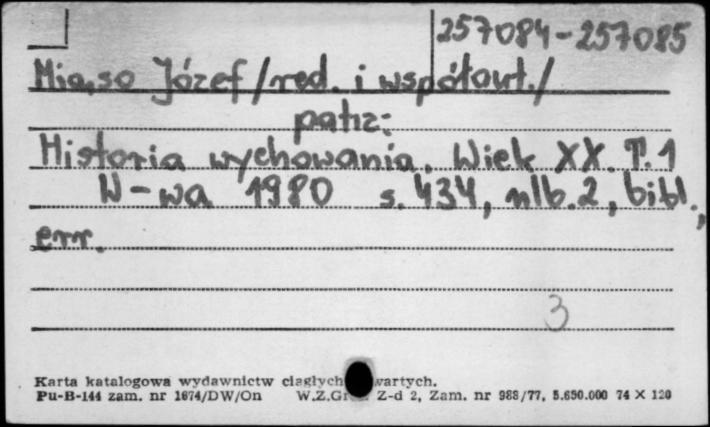 257084-257085
Miąso Józef /red. i współaut./
patrz:
Historia wychowania. Wiek XX. T. 1
W-wa 1980 s. 434, nlb. 2, bibl.,
err.
3
Karta katalogowa wydawnictw ciągłych wartych.
Pu-B-144 zam. nr 1674/DW/On W.Z.Gr Z-d 2, Zam. nr 988/77, 5.650.000 74 X 120